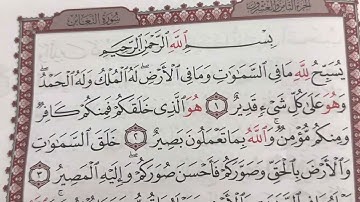 سُورَةُ التَّغَابُنِ
بِسْمِ ٱللَّهِ ٱلرَّحْمَٰنِ ٱلرَّحِيمِ
يُسَبِّحُ لِلَّهِ مَا فِي ٱلسَّمَٰوَٰتِ وَمَا فِي ٱلْأَرْضِۖ لَهُ ٱلْمُلْكُ وَلَهُ ٱلْحَمْدُۖ
وَهُوَ عَلَىٰ كُلِّ شَيْءٍ قَدِيرٌ ١ هُوَ ٱلَّذِي خَلَقَكُمْ فَمِنكُمْ كَافِرٌ
وَمِنكُم مُّؤْمِنٌۚ وَٱللَّهُ بِمَا تَعْمَلُونَ بَصِيرٌ ٢ خَلَقَ ٱلسَّمَٰوَٰتِ
وَٱلْأَرْضَ بِٱلْحَقِّ وَصَوَّرَكُمْ فَأَحْسَنَ صُوَرَكُمْۖ وَإِلَيْهِ ٱلْمَصِيرُ ٣